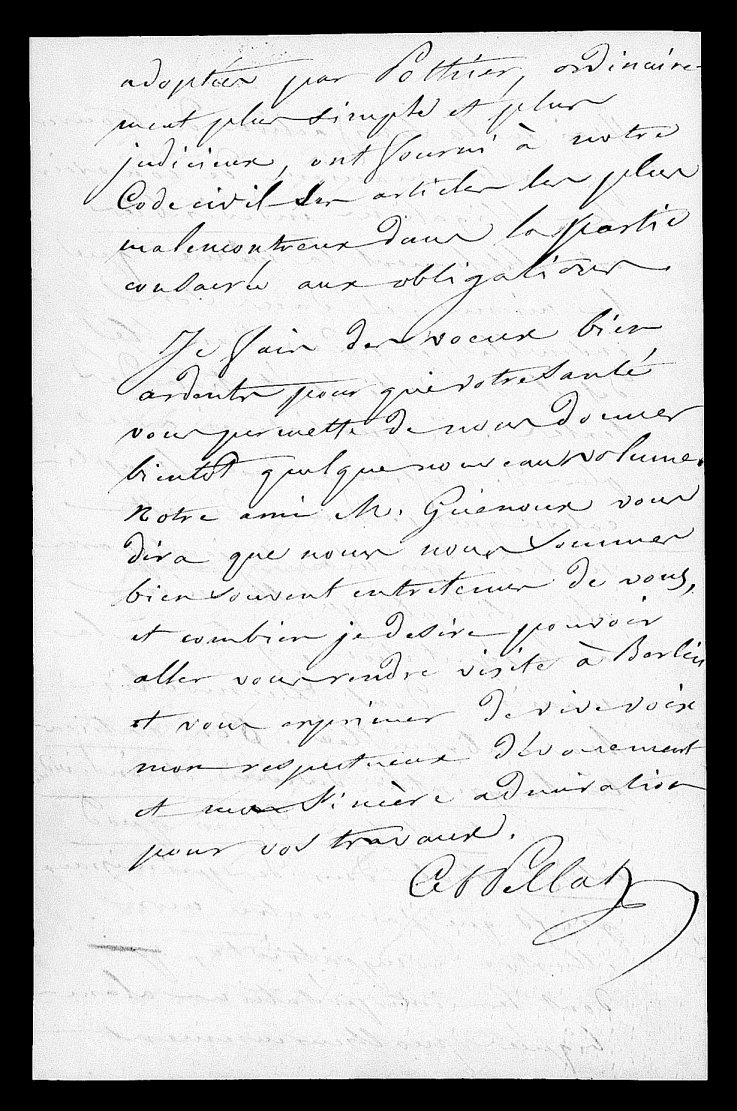 adoptées par Pothier, ordinaire-
ment plus simple et plus
judicieux, ont fourni à notre
Code civil les articles les plus
malencontreux dans la partie
consacrée aux obligations.
Je fais des voeux bien
ardents pour que votre santé
vous permette de nous donner
bientôt quelque nouveau volume.
Notre ami M. Guénoux vous
dira que nous nous sommes
bien souvent entretenus de vous,
et combien je desire pouvoir
aller vous rendre visite à Berlin
et vous exprimer de vive voix
mon respectueux dévouement
et ma sincère admiration
pour vos travaux.
Pellat